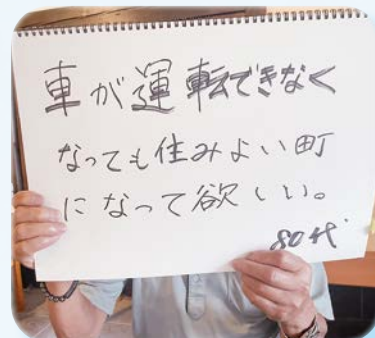 車が運転できなく
なっても住みよい町
になって欲しい。
80代